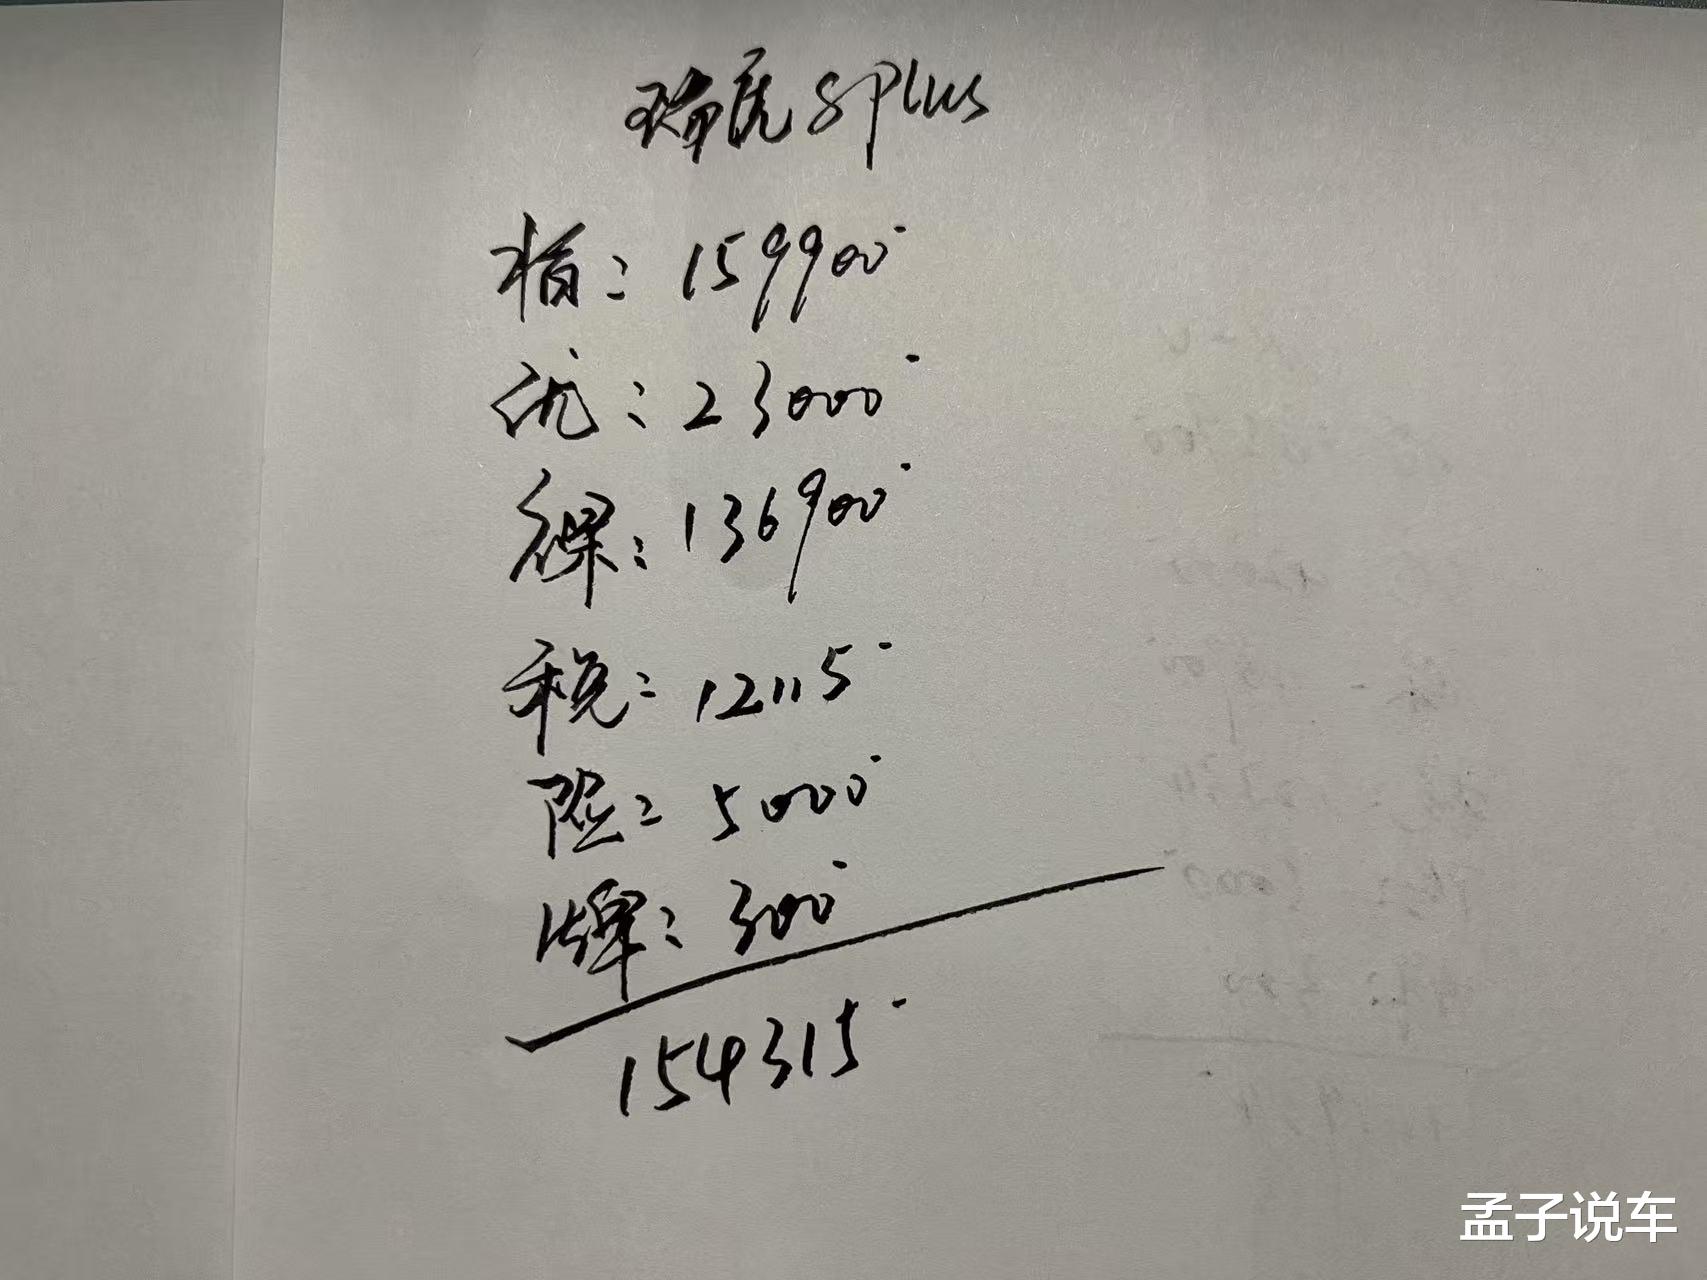 瑞虎8Plus
指：159900
优：23000
裸：136900
税：12115
险：5000
牌：300
154315
孟子说车